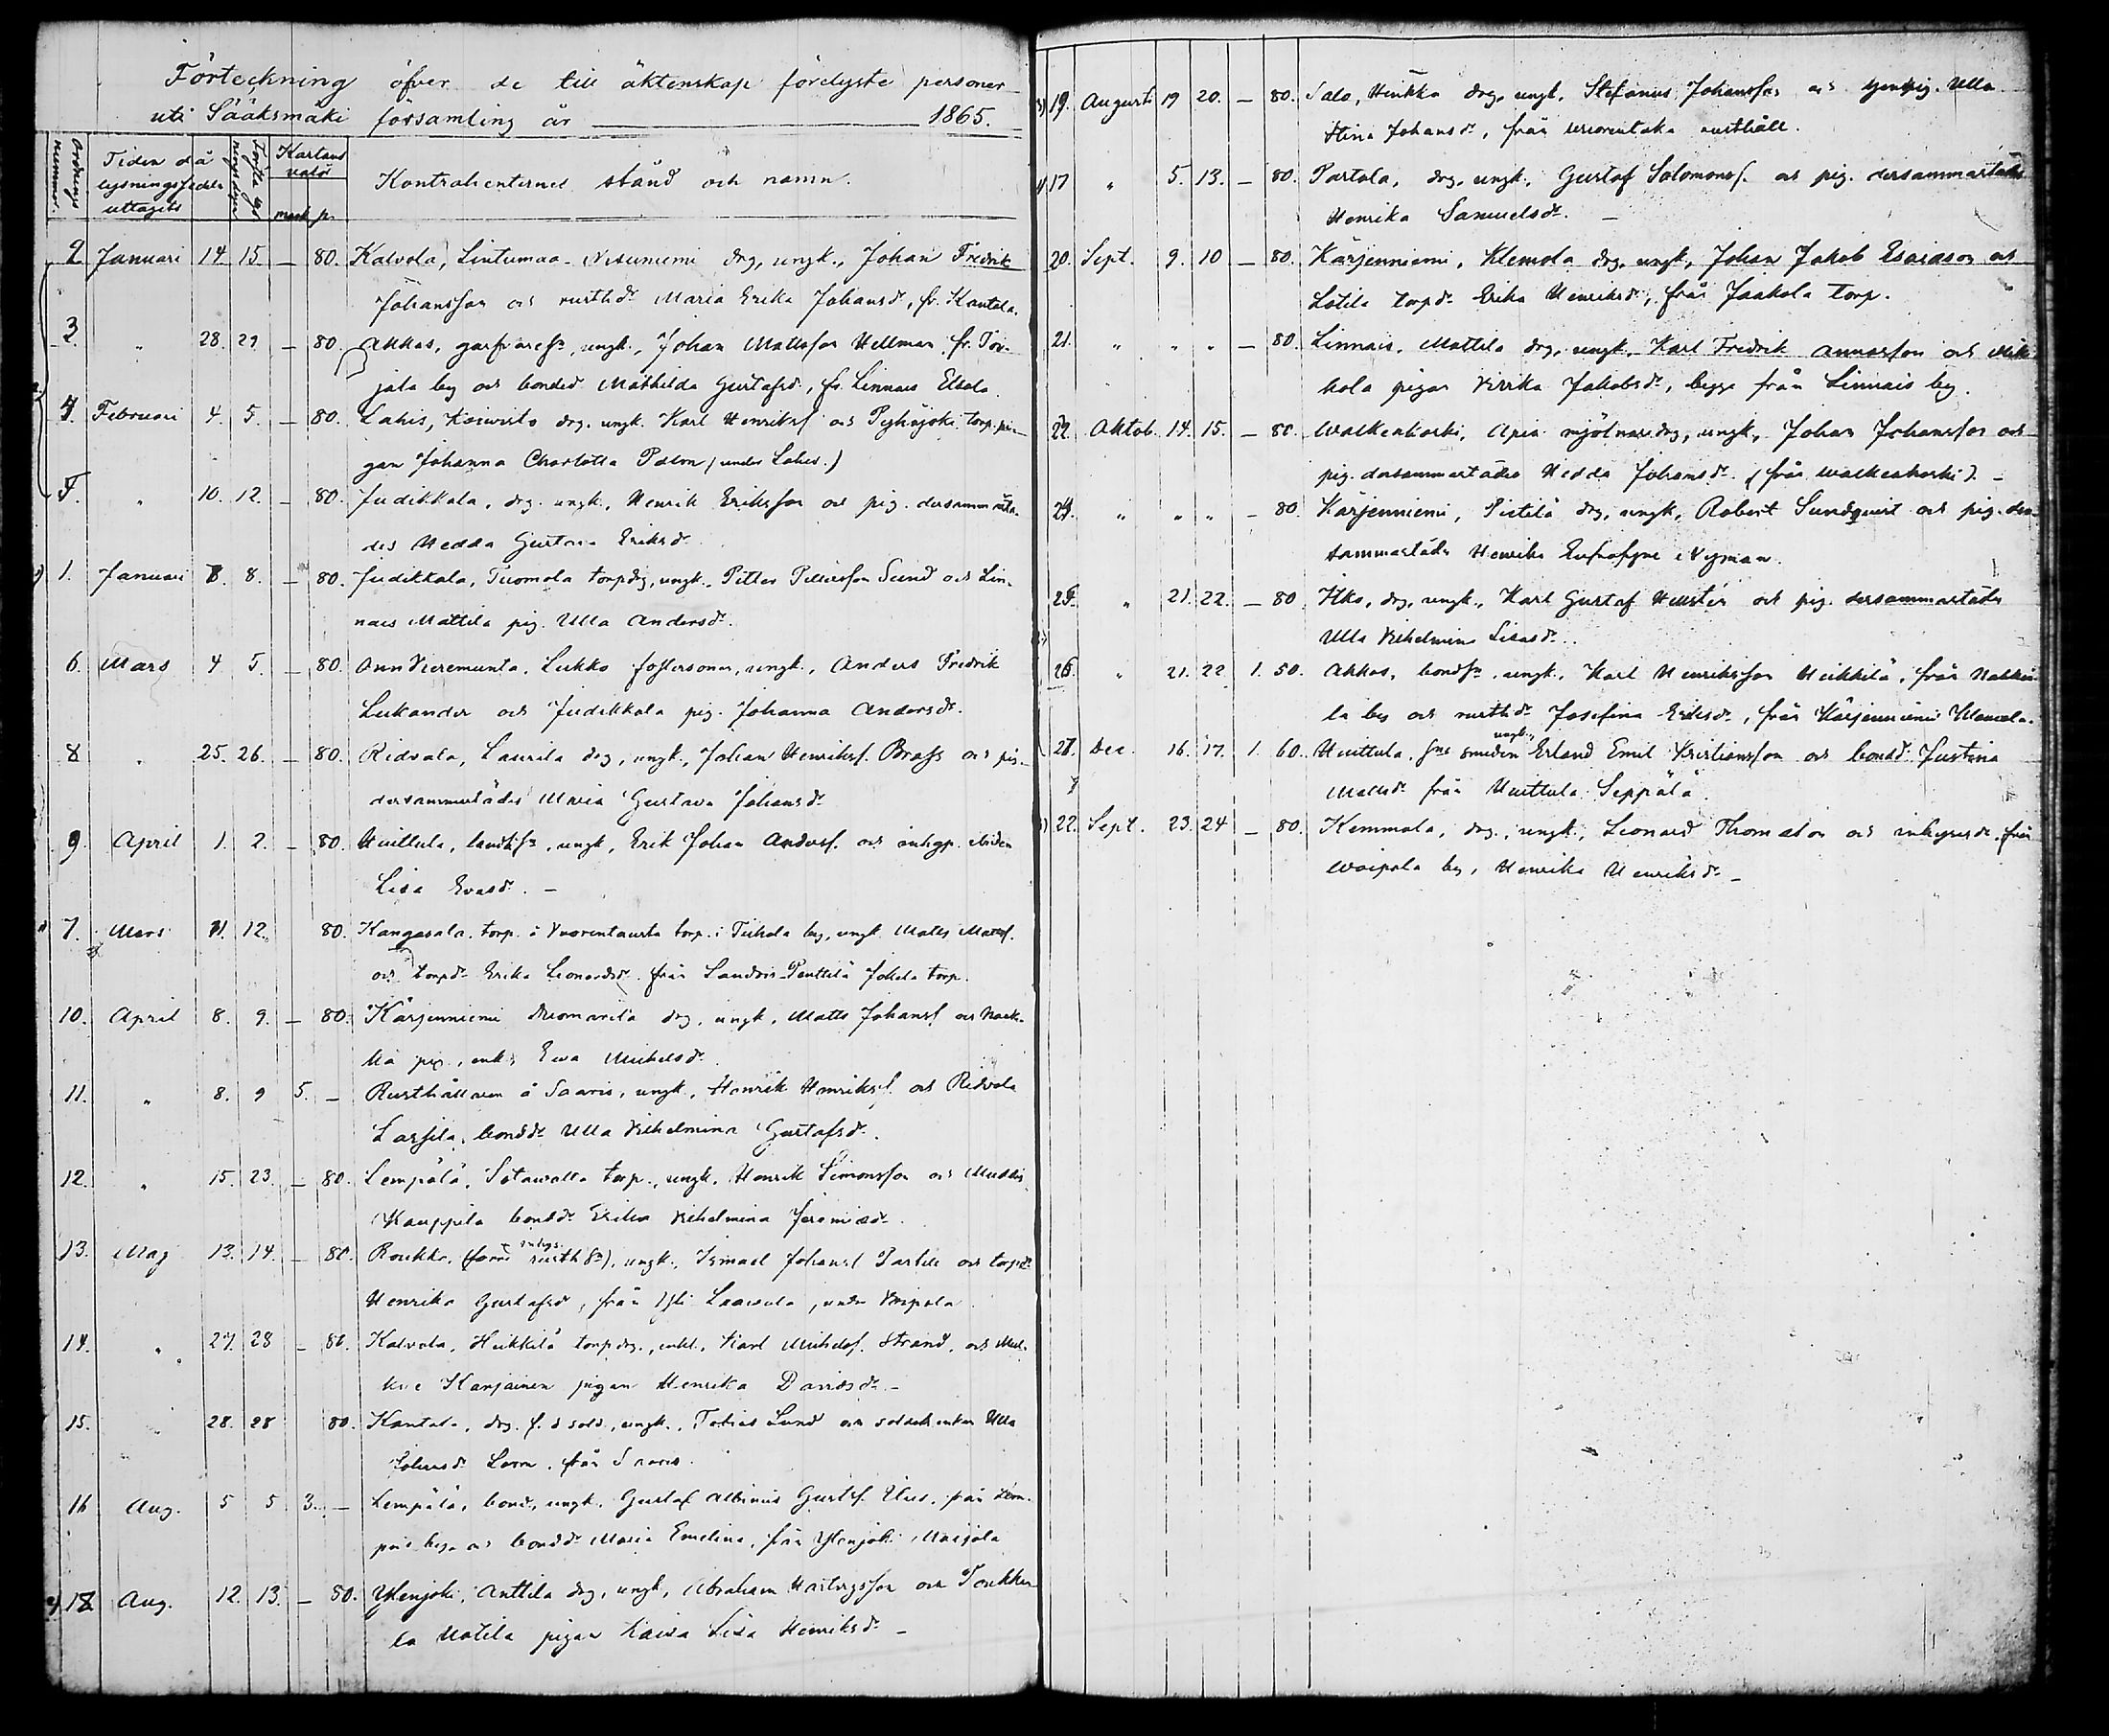 Förteckning öfver de till äktenskap förelyste personer
uti Sääksmäki församling år 1865.
Ordnings nummer. Tiden då lysningssedeln uttagits Första lysningsdagen Kartaus valör mark p. Kontrahenternes stånd och namn.
2. Januari 14. 15. — 80. Kalvola, Lintumaa-Nisuniemi drg, ungk., Johan Fredrik
Johansson och rusthd. Maria Erika Johansd., fr. Kantala.
3. " 28. 29 — 80. Akkas, garfvares., ungk., Johan Mattsson Hellman, fr. Toi-
jala by och bonded. Mathilda Gustafsd., fr. Linnais Eskola.
4. Februari 4. 5. — 80. Lahis, drg. ungk. Karl Henrikss. och torp. pi-
gan Johanna Charlotta Palm (under Lahis.)
5. " 10. 12. — 80. Judikkala, drg. ungk., Henrik Eriksson och pig. dersammastä-
des Hedda Gustava Eriksd.
1. Januari 7. 8. — 80. Judikkala, Tuomola torpdrg, ungk., Petter Pettersson Sund och Lin-
nais Mattila pig. Ulla Andersd.
6. Mars 4 5. — 80. Annvieremunta, Lukko fostersonen, ungk., Anders Fredrik
Lukander och Judikkala pig. Johanna Andersd.
8 " 25. 26. — 80. Ridvala, Laurila drg, ungk., Johan Henrikss. Brass och pig.
dersammastädes Maria Gustava Johansd.
9. April 1. 2. — 80. Huittula, ungk., Erik Johan Anderss. och inhyp.
Lisa Evasd. —
7. Mars 11. 12. 80. Kangasala torp. å Vuorentausta torp. i by, ungk. Matts Matss.
och torpd. Erika Leonardsd. från Sandvis-Penttilä Jokela torp.
10. April 8. 9. — 80. Kärjenniemi drg, ungk., Matts Johanss. och
pig., enk. Ewa Michelsd.
11. " 8. 9 5. — Rusthållaren å Saaris, ungk., Henrik Henrikss. och Ridvala
Lassila, bondd. Ulla Vilhelmina Gustafsd.
12. " 15. 23. — 80. Lempälä, torp., ungk., Henrik Simonsson och
Kauppila bondd. Erika Vilhelmina Jeremiasd.
13. Maj 13. 14. — 80. Roukko, (förre inhys. rusth. s.), ungk., Ismael Johanss. och torpd.
Henrika Gustafsd., från Yli Laavola, under Voipala
14. " 27. 28 — 80. Kalvola, Heikkilä torpdrg., enkl., Karl Michelss. Strand, och
Karjainen pigan Henrika Davidsd. —
15. " 28. 28 80. Kantala, drg. f. d. sold., ungk., Tobias Lund och soldatenkan Ulla
Johansd. från Saaris.
16 Aug. 5 5 3. — Lempälä, bond., ungk. Gustaf Albinus Gustfs. från
by och bondd. Maria Emelina, från Ylenjoki Maijala
18 Aug. 12. 13. — 80. Ylenjoki, Anttila drg, ungk., Abraham Hartvigsson och
la Uotila pigan Kaisa Lisa Henriksd. —
19. Augusti 19 20. — 80. Salo, Heikka drg. ungk. Stefanus Johansson och Ulla
Stina Johansd., från rusthåll.
17 " 5. 13. — 80. Partola, drg. ungk., Gustaf Solomonss. och pig. dersammastädes
Henrika Samuelsd. —
20. Sept. 9. 10 — 80. Kärjenniemi, Klemola drg. ungk., Johan Jakob Esaiason och
Lotila torpd. Erika Henriksd., från Jaakola torp.
21. " " " — 80. Linnais, Mattila drg, ungk., Karl Fredrik Annasson och
kola pigan Vivika Jakobsd., begge från Linnais by.
22. Oktob. 14. 15. — 80. Walkeakoski, Apia mjölnardrg, ungk., Johan Johansson och
pig. dersammastädes Hedda Johansd. (från Walkeakoski). —
24. " " " — 80. Kärjenniemi, Pietilä drg, ungk., Robert Sundquist och pig. der-
sammastädes Henrika Eufrosyne Nyman.
25. " 21. 22. — 80. Itko, drg, ungk., Karl Gustaf och pig. dersammastädes
Ulla Vilhelmina Lisasd.
26. " 21. 22 1. 50. Akkas, bonds., ungk., Karl Henriksson Heikkilä, från
la by och rusthd. Josefina Eriksd., från Kärjenniemi Klemola.
27. Dec. 16. 17. 1. 60. Huittula, smeden ungk. Erland Emil Kristiansson och bondd. Justina
Mattsd. från Huittula Seppälä.
22. Sept. 23. 24 — 80. Kemmola, drg., ungk., Leonard Thomasson och inhysesd. från
Woipala by, Henrika Henriksd. —